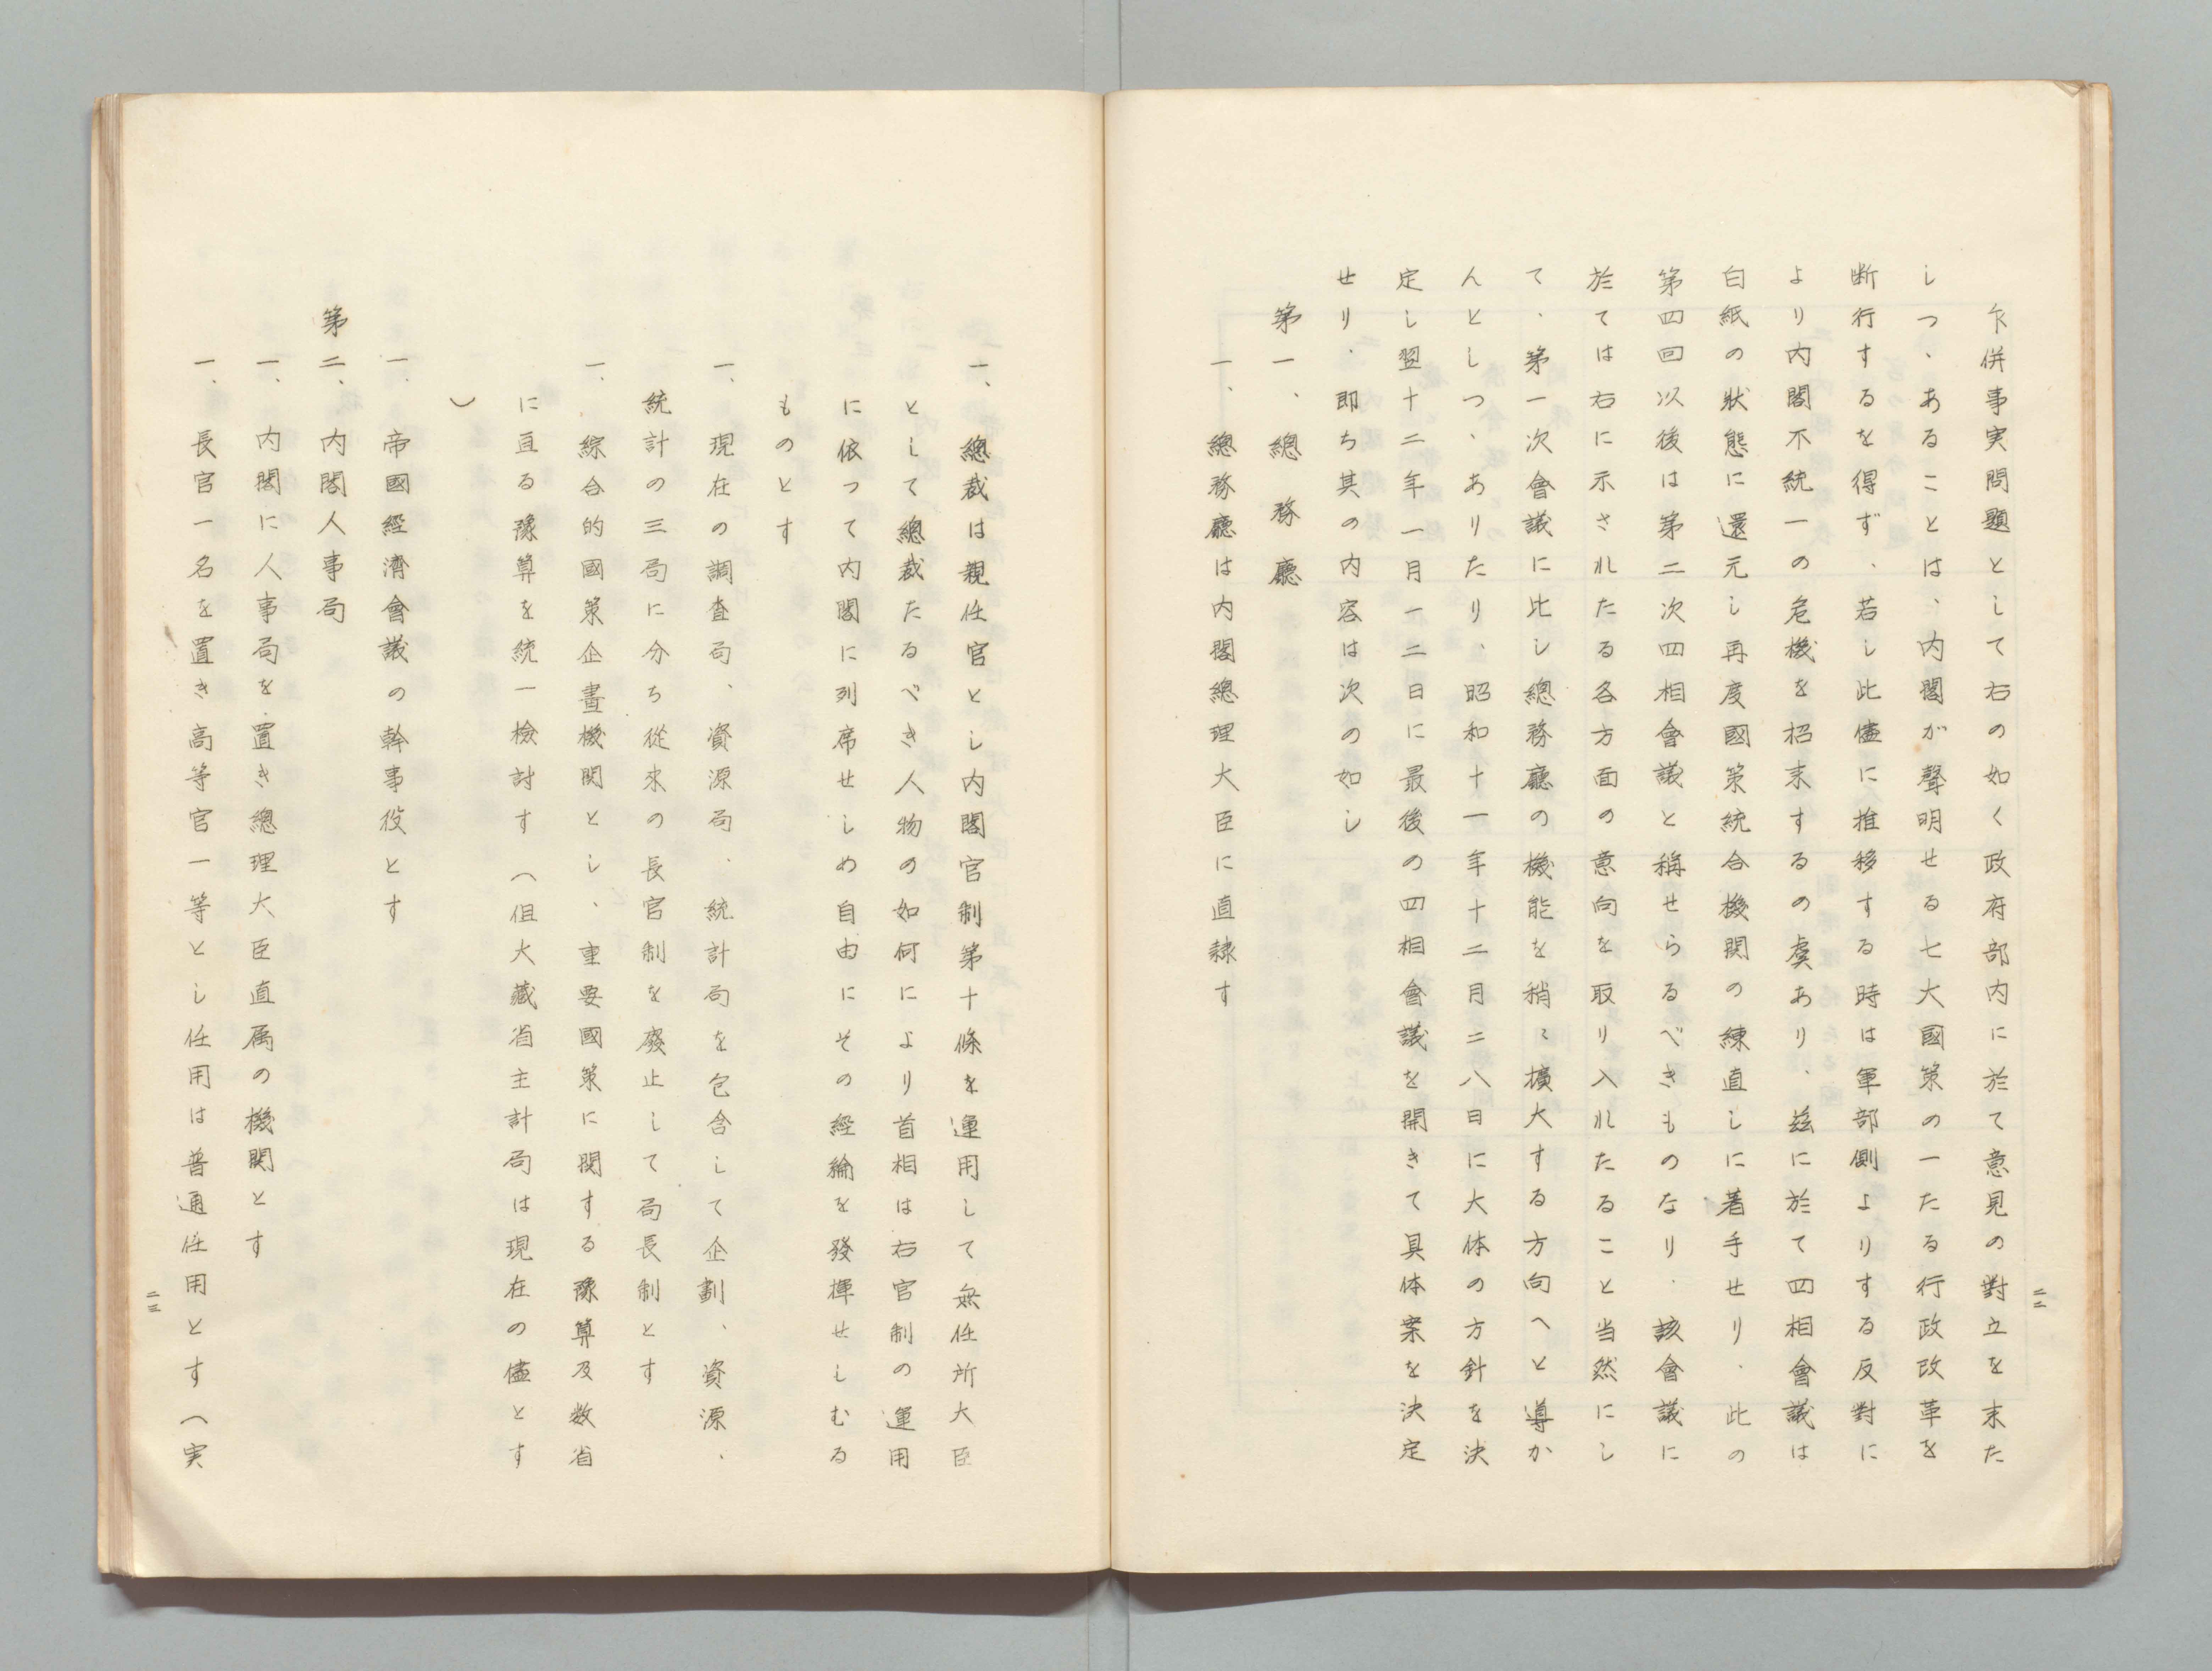 乍併事実問題として右の如く政府部内に於て意見の對立を末た
しつ、あることは、内閣が聲明せる七大國策の一たる行政改革を
断行するを得ず、若し此儘に推移する時は軍部側よりする反對に
より内閣不統一の危機を招末するの虞あり、玆に於て四相會議は
白紙の狀態に還元し再度國策統合機関の練直しに着手せり、此の
第四回以後は第二次四相會議と稱せらるべきものなり、該會議に
於ては右に示されたる各方面の意向を取り入れたること当然にし
て、第一次會議に比し總務廳の機能を稍〻擴大する方向へと導か
んとしつ、ありたり、昭和十一年十二月二八日に大体の方針を決
定し翌十二年一月一二日に最後の四相會議を開きて具体案を決定
せり、即ち其の内容は次の如し
第一、總務廳
一、總務廳は内閣總理大臣に直隷す
二二
一、總裁は親任官とし内閣官制第十條を運用して無任所大臣
として總裁たるべき人物の如何により首相は右官制の運用
に依って内閣に列席せしめ自由にその経綸を發揮せしむる
ものとす
一、現在の調査局、資源局、統計局を包含して企劃、資源、
統計の三局に分ち從來の長官制を廢止して局長制とす
一、綜合的國策企畫機関とし、重要國策に関する豫算及数省
に亘る豫算を統一檢討す（但大藏省主計局は現在の儘とす
）
一、帝國經濟會議の幹事役とす
第二、内閣人事局
一、内閣に人事局を置き總理大臣直属の機関とす
一、長官一名を置き高等官一等とし任用は普通任用とす（実
二三